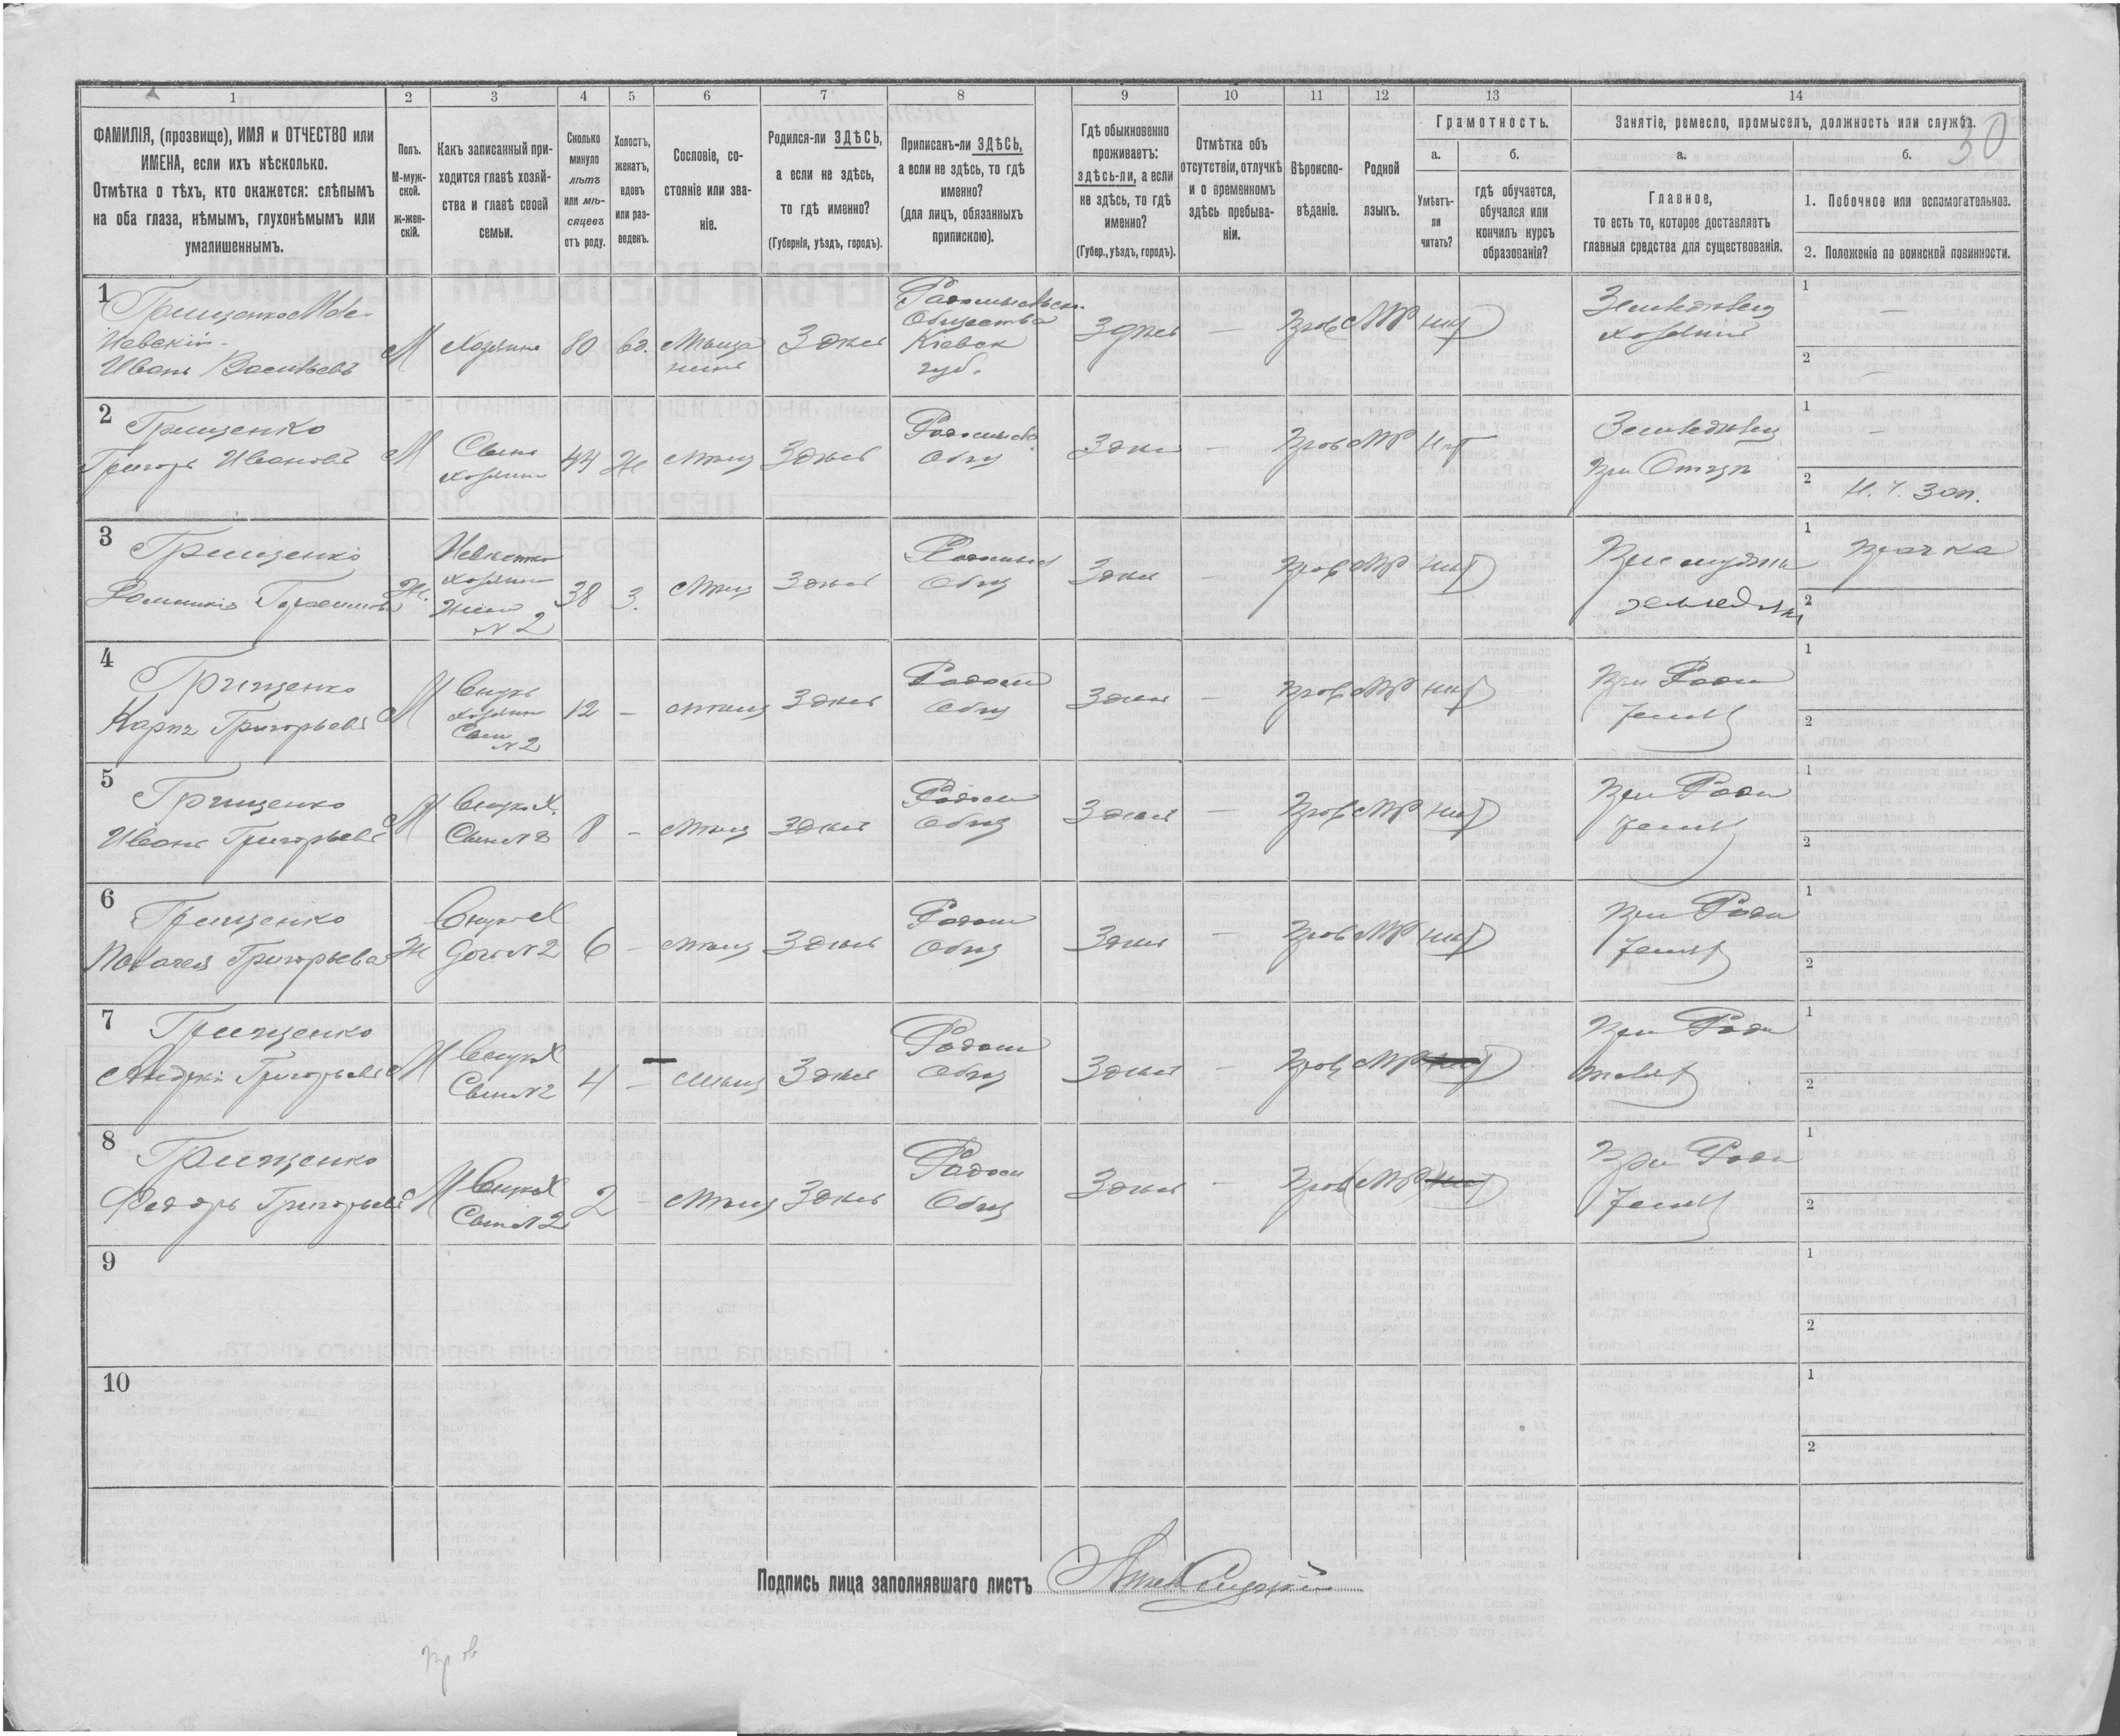 30
1 2 3 4 5 6 7 8 9 10 11 12 13 14
ФАМИЛІЯ, (прозвище), ИМЯ и ОТЧЕСТВО или
ИМЕНА, если ихъ нѣсколько.
Отмѣтка о тѣхъ, кто окажется: слѣпымъ
на оба глаза, нѣмымъ, глухонѣмымъ или
умалишеннымъ.
Полъ.
М-муж-
ской.
ж-жен-
скій.
Какъ записанный при-
ходится главѣ хозяй-
ства и главѣ своей
семьи.
Сколько
минуло
лѣтъ
или мѣ-
сяцевъ
отъ роду.
Холостъ,
женатъ,
вдовъ
или раз-
веденъ.
Сословіе, со-
стояніе или зва-
ніе.
Родился-ли ЗДѢСЬ,
а если не здѣсь,
то гдѣ именно?
(Губернія, уѣздъ, городъ).
Приписанъ-ли ЗДѢСЬ,
а если не здѣсь, то гдѣ
именно?
(для лицъ, обязанныхъ
припискою).
Гдѣ обыкновенно
проживаетъ:
здѣсь-ли, а если
не здѣсь, то гдѣ
именно?
(Губер., уѣздъ, городъ).
Отмѣтка объ
отсутствіи, отлучкѣ
и о временномъ
здѣсь пребыва-
ніи.
Вѣроиспо-
вѣданіе.
Родной
языкъ.
Грамотность.
а.
Умѣетъ-
ли
читать?
б.
гдѣ обучается,
обучался или
кончилъ курсъ
образованія?
Занятіе, ремесло, промыселъ, должность или служба.
а.
Главное,
то есть то, которое доставляетъ
главныя средства для существованія.
б.
1. Побочное или вспомогательное.
2. Положеніе по воинской повинности.
1
Грищенко
Иванъ Васильевъ
М
Хозяинъ
80
вд.
Мѣща
нинъ
Здѣсь
Общества
Кіевск
губ.
Здѣсь
—
Прав
МР
нѣт
Земледѣлец
хозяинъ
1
—
2
—
2
Грищенко
Григорь Ивановъ
М
Сынъ
хозяина
44
Ж
Мѣщ
Здѣсь
Общ
Здѣсь
—
Прав
МР
нѣт
Земледѣлец
при Отцѣ
1
—
2
И. Ч. Зап.
3
Грищенко
Ж.
Невѣстка
хозяина
Жена
№ 2
38
З.
Мѣщ
Здѣсь
Общ
Здѣсь
—
Прав
МР
нѣт
1
Прачка
2
4
Грищенко
Карпъ Григорьевъ
М
Внукъ
хозяина
Сынъ
№ 2
12
—
Мѣщ
Здѣсь
Радом
Общ
Здѣсь
—
Прав
МР
нѣт
При Роди
телях
1
2
5
Грищенко
Иванъ Григорьевъ
М
Внукъ Х.
Сынъ № 2
8
—
Мѣщ
Здѣсь
Радом
Общ
Здѣсь
—
Прав
МР
нѣт
При Роди
телях
1
2
6
Грищенко
Григорьева
Ж
Внука Х
Дочь № 2
6
—
Мѣщ
Здѣсь
Радом
Общ
Здѣсь
—
Прав
МР
нѣт
При Роди
телях
1
2
7
Грищенко
Андрей Григорьевъ
М
Внукъ Х
Сынъ № 2
4
—
Мѣщ
Здѣсь
Радом
Общ
Здѣсь
—
Прав
МР
При Роди
телях
1
2
8
Грищенко
Федоръ Григорьевъ
М
Внукъ Х
Сынъ № 2
2
—
Мѣщ
Здѣсь
Радом
Общ
Здѣсь
—
Прав
МР
При Роди
телях
1
2
9
1
2
10
1
2
Подпись лица заполнявшаго листъ